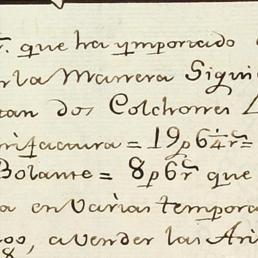 r. que ha ymporrado
la Manera Sigui
tan dos Colchones
nifactura = 19p6¼rs=
Bolante = 8p6rs que
a en varias tempora
os, a vender las Ari